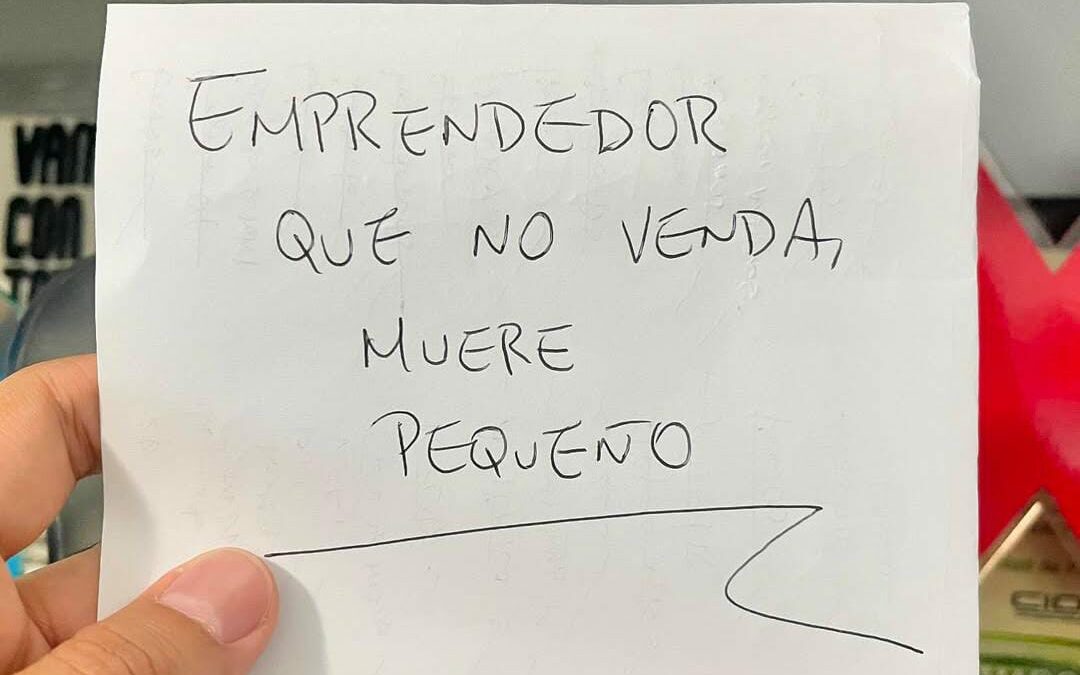 EMPRENDEDOR
QUE NO VENDA,
MUERE
PEQUEÑO
VAM
CON